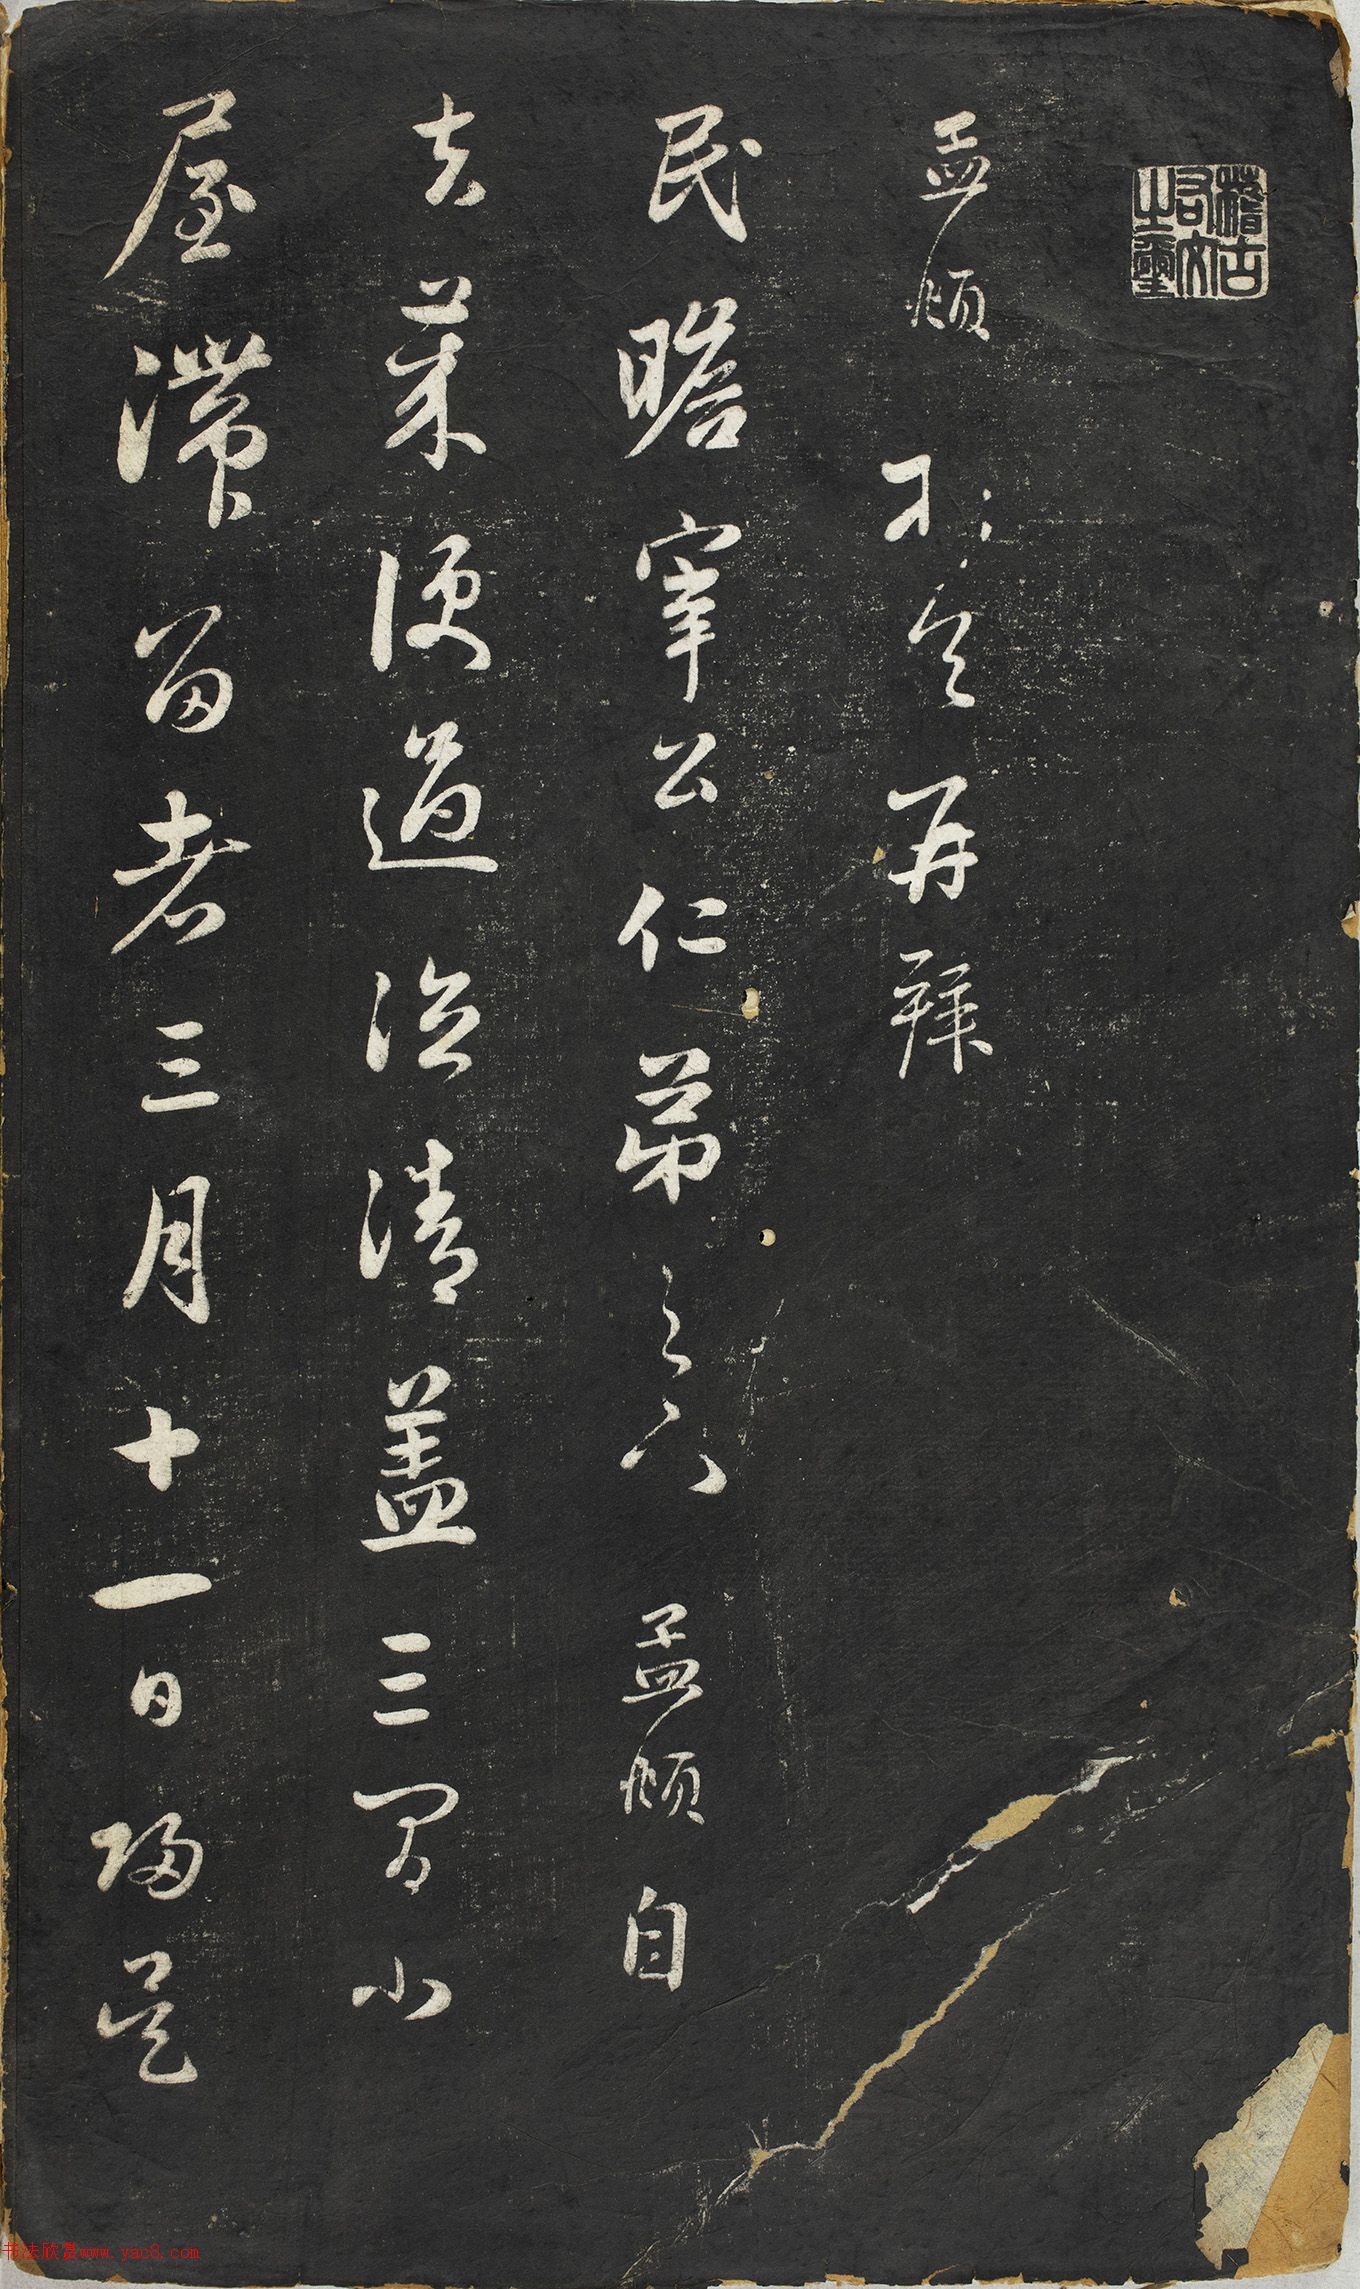 稽古右文之璽
孟頫頓首再拜
民瞻宰公仁弟足下孟頫自
去歲便過德清蓋三間小
屋滯留者三月十一日歸吳
书法欣赏www.yac8.com